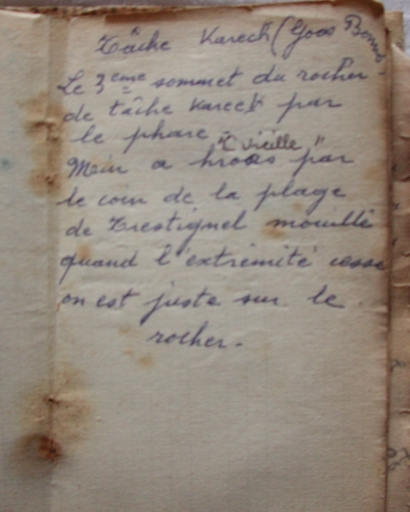 Tâche Kareck (Goas Bonns
Le 3eme sommet du rocher
de tâche Kareck par
le phare
"C vieille"
Mein a hroas par
le coin de la plage
de Trestignel mouillé
quand l'extrémité cesse
on est juste sur le
rocher.